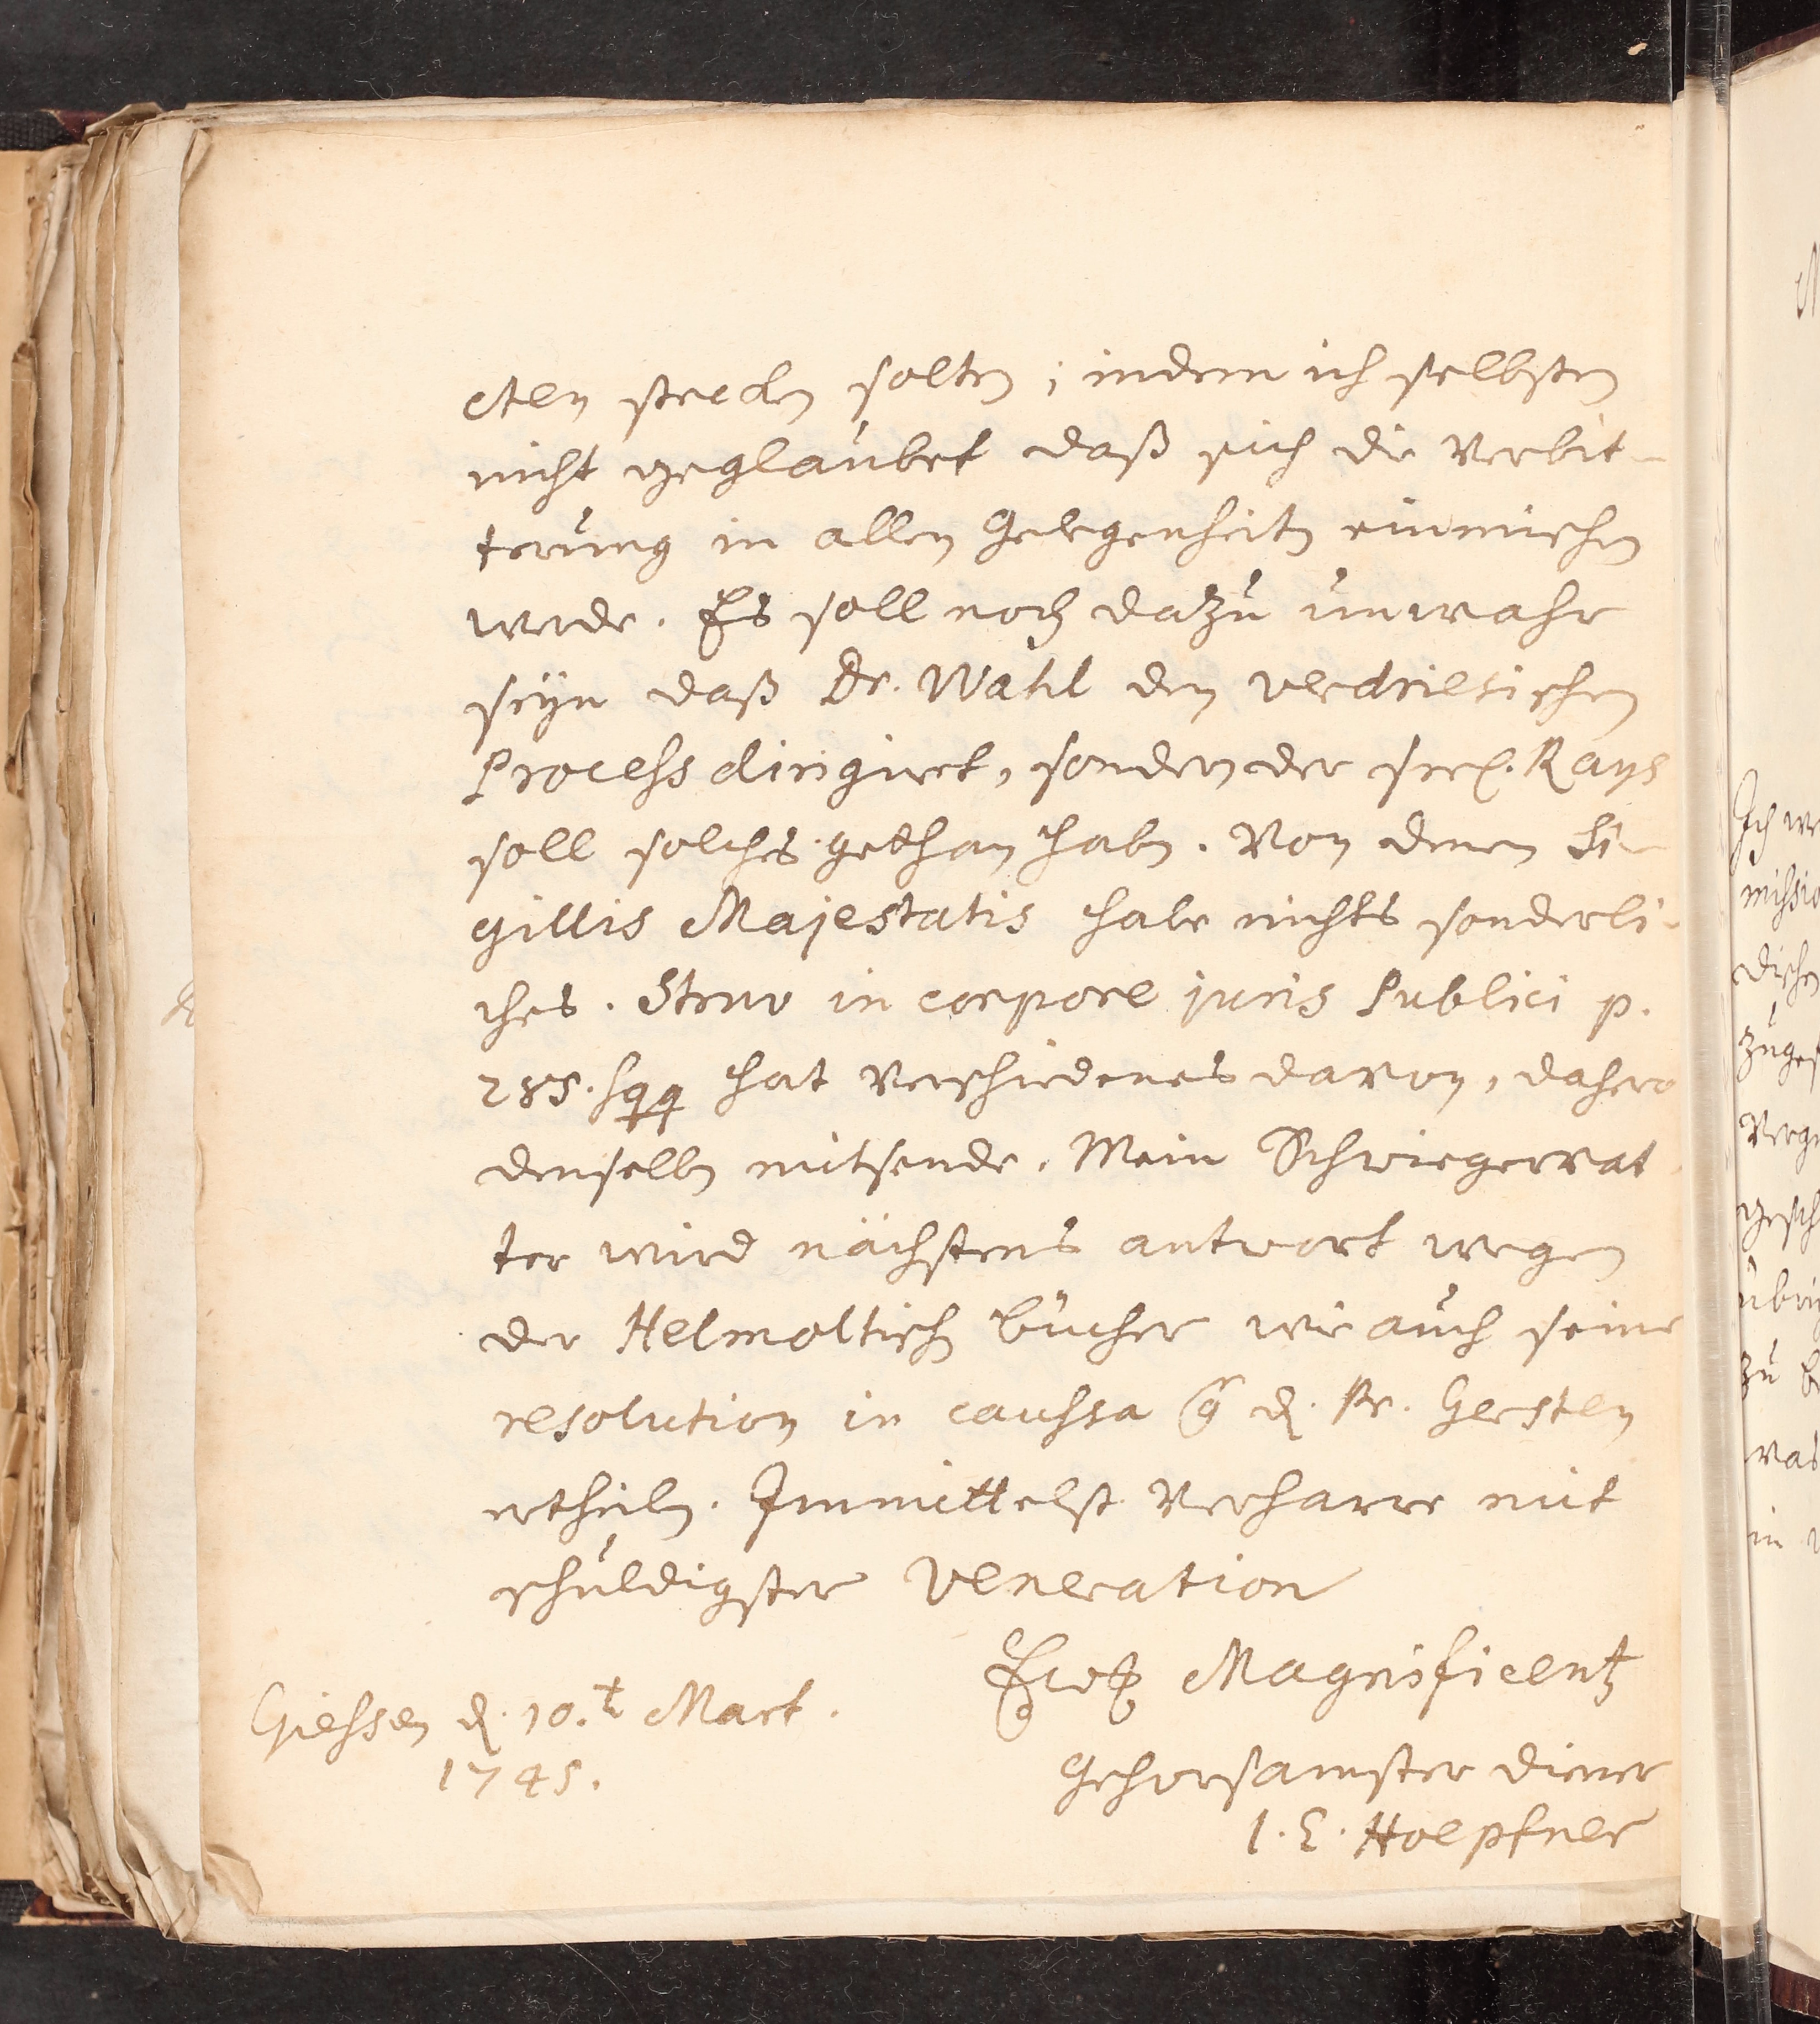 cten stecken solten; indem ich selbsten
nicht geglaubet daß sich die Verbit-
terung in allen Gelegenheiten einmischen
werde. Es soll noch dazu unwahr
seyn daß Dr. Wahl den verdriesischen
Process dirigiret, sondern der seel. Rays
soll solches gethan haben. Von denen Si-
gillis Majestatis habe nichts sonderli-
ches. Struv in corpore juris Publici p.
285. sqq hat Verschiedenes davon, dahero
denselben mitsende. Mein Schwiegervat
ter wird nächstens antwort wegen
der Helmoltisch Bücher wie auch seine
resolution in caussa d. Pr. Gersten
ertheilen. Immittelst Verharre mit
schuldigster Veneration
Ew. Magnificentz
Giessen d. 10.t Mart.
1745.
gehorsamster diener
I. E. Hoepfner